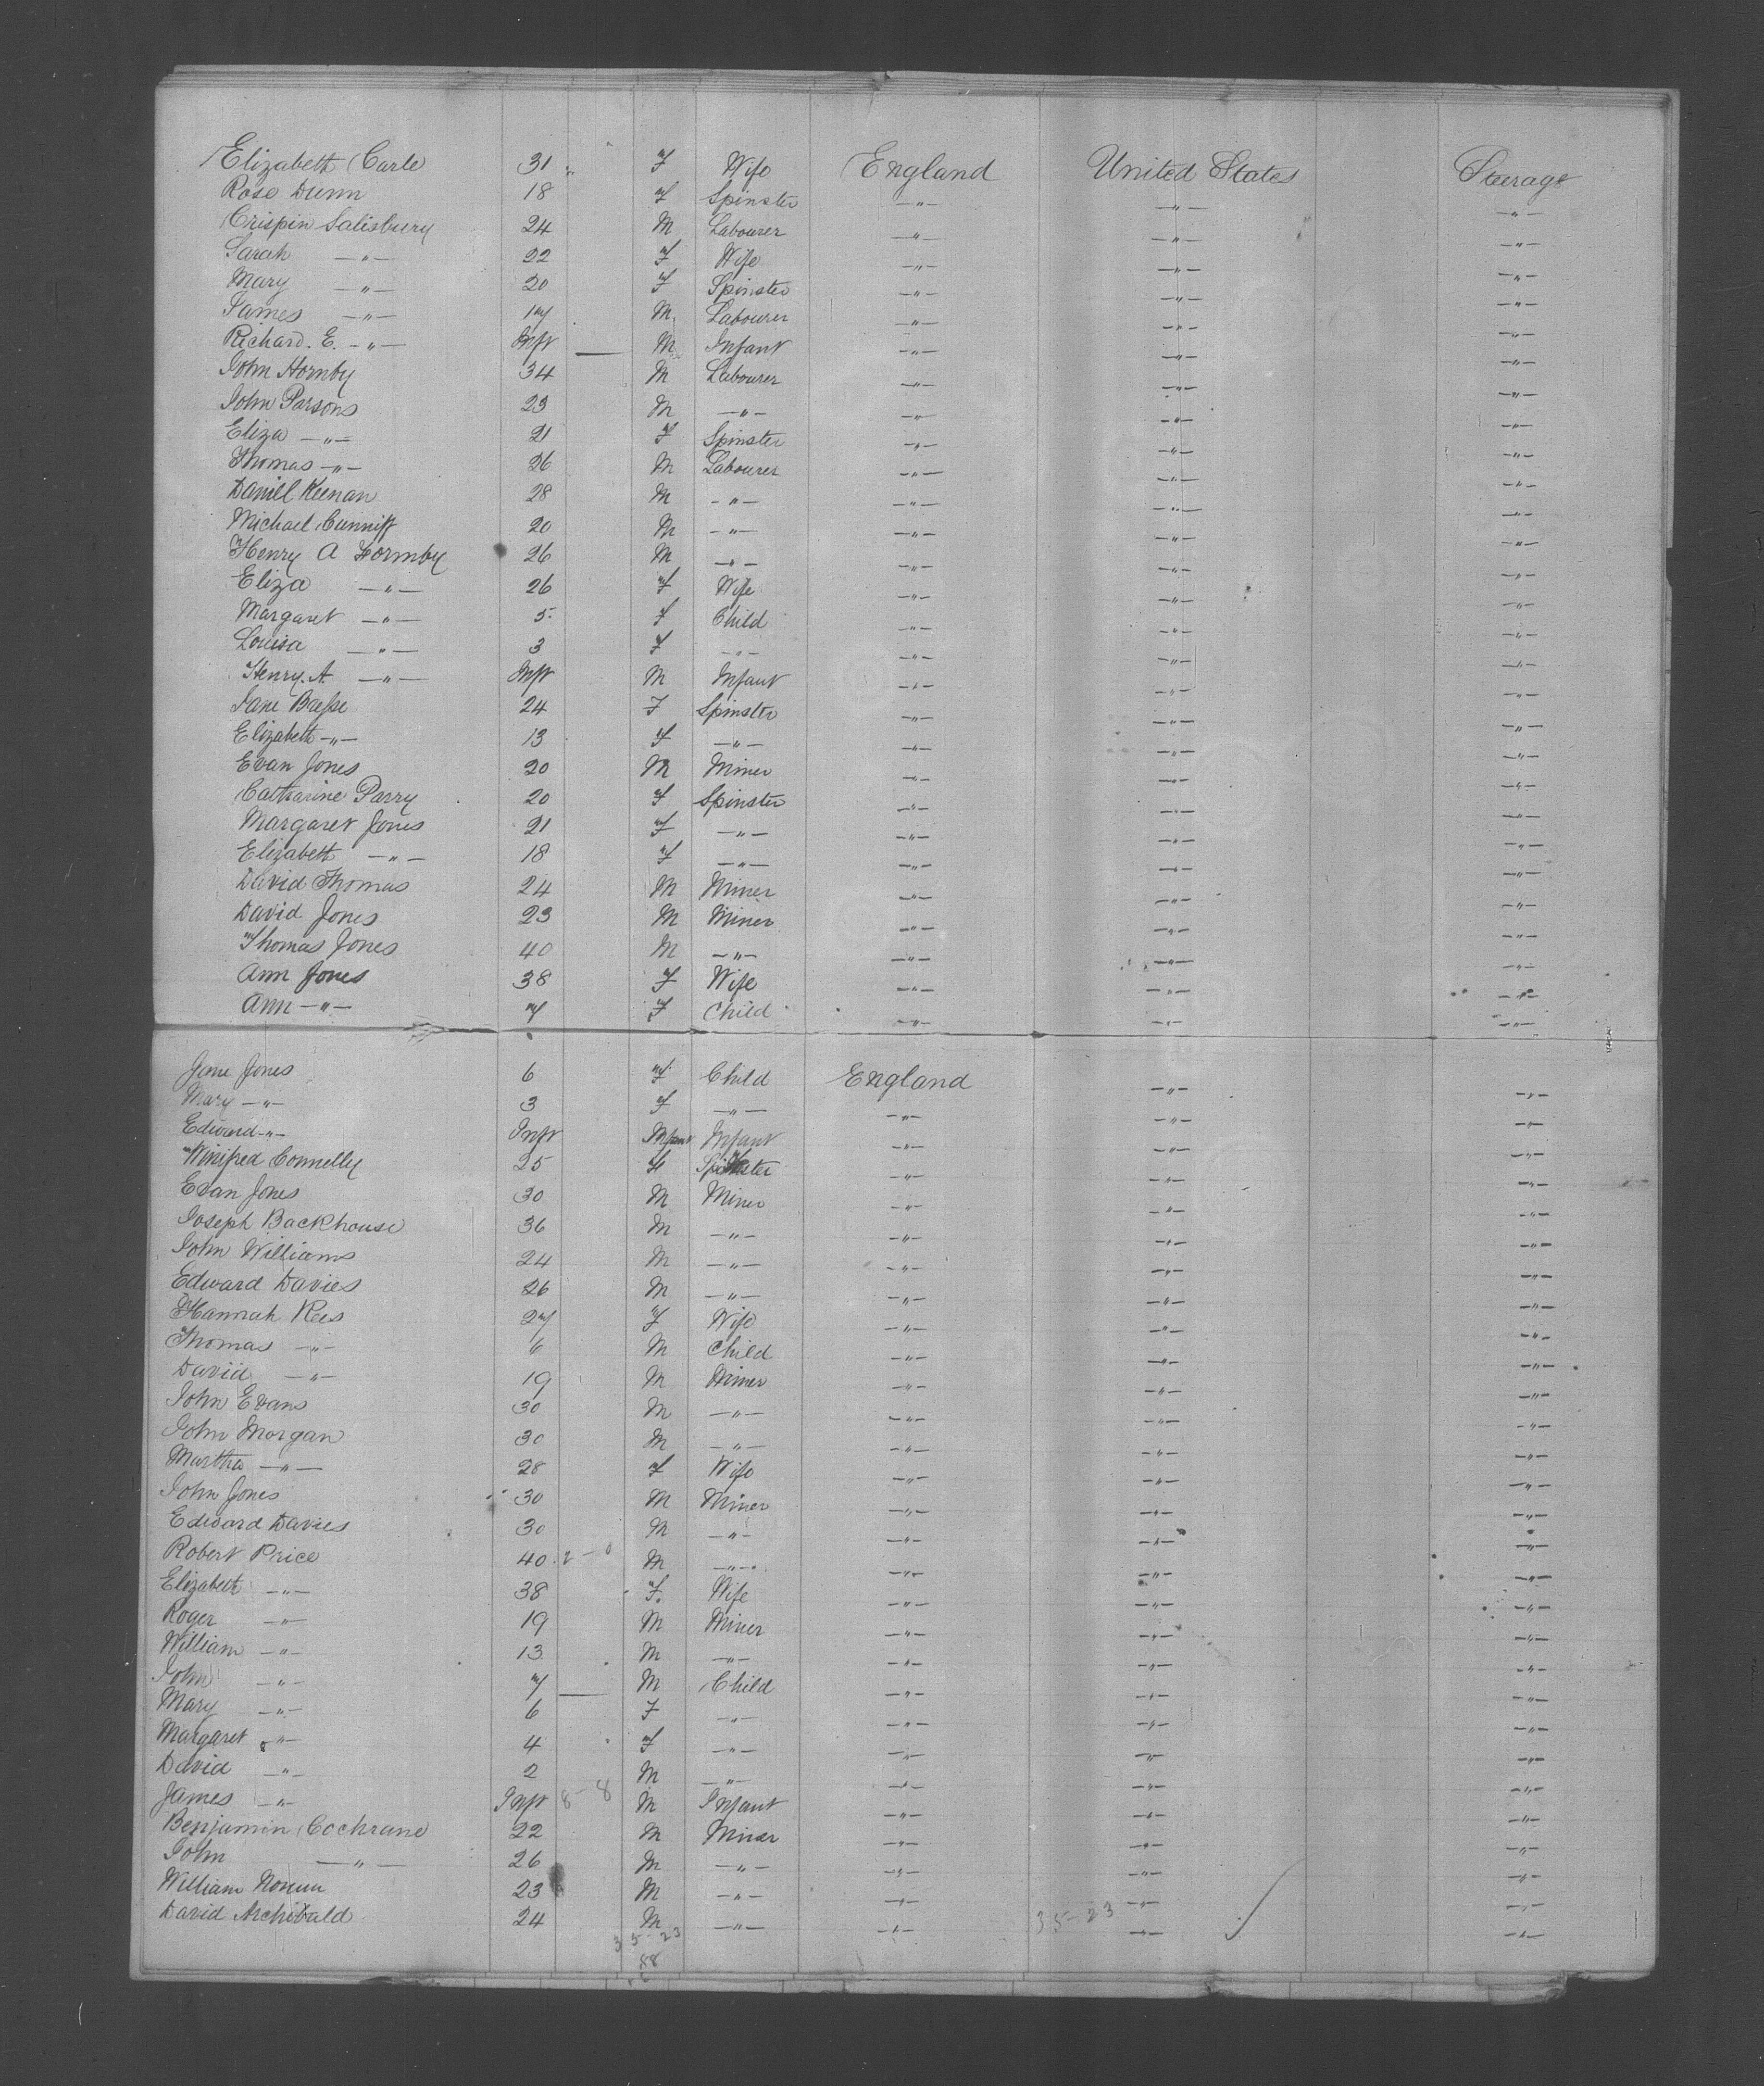 Elizabeth Carle 31 " F Wife England United States Steerage
Rose Dunn 18 F Spinster —"— —"— —"—
Crispin Salisbury 24 M Labourer —"— —"— —"—
Sarah —"— 22 F Wife —"— —"— —"—
Mary —"— 20 F Spinster —"— —"— —"—
James —"— 17 M Labourer —"— —"— —"—
Richard. E. —"— Inft — M Infant —"— —"— —"—
John Hornby 34 M Labourer —"— —"— —"—
John Parsons 23 M —"— —"— —"— —"—
Eliza —"— 21 F Spinster —"— —"— —"—
Thomas —"— 26 M Labourer —"— —"— —"—
Daniel Keenan 28 M —"— —"— —"— —"—
Michael Cunniff 20 M —"— —"— —"— —"—
Henry A Formby 26 M —"— —"— —"— —"—
Eliza —"— 26 F Wife —"— —"— —"—
Margaret —"— 5 F Child —"— —"— —"—
Louisa —"— 3 F —"— —"— —"— —"—
Henry. A —"— Inft M Infant —"— —"— —"—
Jane 24 F Spinster —"— —"— —"—
Elizabeth —"— 13 F —"— —"— —"— —"—
Evan Jones 20 M Miner —"— —"— —"—
Catharine Parry 20 F Spinster —"— —"— —"—
Margaret Jones 21 F —"— —"— —"— —"—
Elizabeth —"— 18 F —"— —"— —"— —"—
David Thomas 24 M Miner —"— —"— —"—
David Jones 23 M Miner —"— —"— —"—
Thomas Jones 40 M —"— —"— —"— —"—
Ann Jones 38 F Wife —"— —"— —"—
Ann —"— 7 F Child —"— —"— —"—
Jane Jones 6 F Child England —"— —"—
Mary —"— 3 F —"— —"— —"— —"—
Edward —"— Inft Infant Infant —"— —"— —"—
Winifred Connelly 25 F Spinster —"— —"— —"—
Evan Jones 30 M Miner —"— —"— —"—
Joseph Backhouse 36 M —"— —"— —"— —"—
John Williams 24 M —"— —"— —"— —"—
Edward Davies 26 M —"— —"— —"— —"—
Hannah Rees 27 F Wife —"— —"— —"—
Thomas —"— 6 M Child —"— —"— —"—
David —"— 19 M Miner —"— —"— —"—
John Evans 30 M —"— —"— —"— —"—
John Morgan 30 M —"— —"— —"— —"—
Martha —"— 28 F Wife —"— —"— —"—
John Jones 30 M Miner —"— —"— —"—
Edward Davies 30 M —"— —"— —"— —"—
Robert Price 40 2 - 0 M —"— —"— —"— —"—
Elizabeth —"— 38 F. Wife —"— —"— —"—
Roger —"— 19 M Miner —"— —"— —"—
William —"— 13 M —"— —"— —"— —"—
John —"— 7 — M Child —"— —"— —"—
Mary —"— 6 F —"— —"— —"— —"—
Margaret —"— 4 F —"— —"— —"— —"—
David —"— 2 M —"— —"— —"— —"—
James —"— Inft 8 - 8 M Infant —"— —"— —"—
Benjamin Cochrane 22 M Miner —"— —"— —"—
John —"— 26 M —"— —"— —"— —"—
William 23 M —"— —"— —"— —"—
David Archibald 24 M —"— —"— —"— —"—
35-23 35-23
88